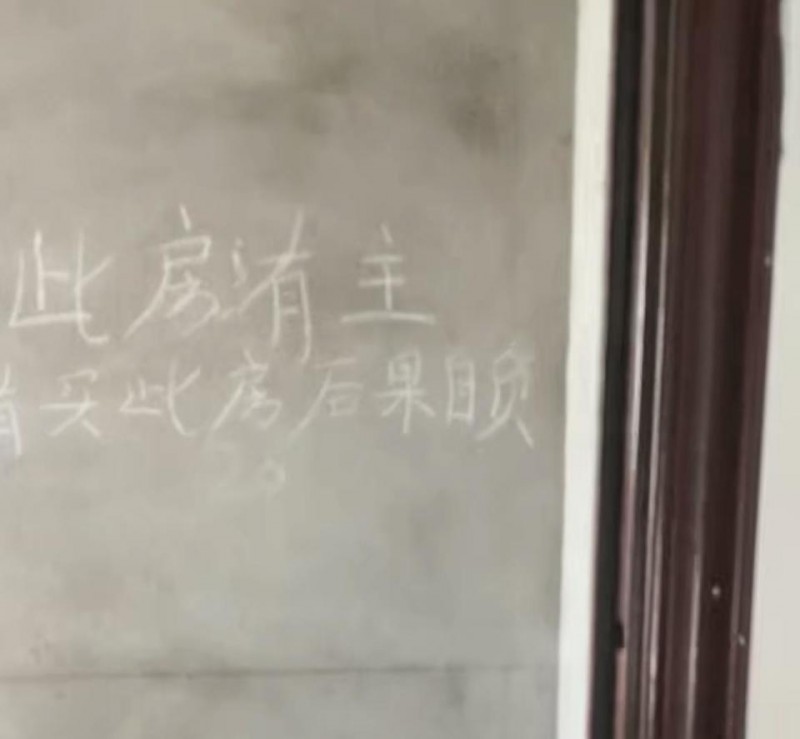 此房有主
买此房后果自负